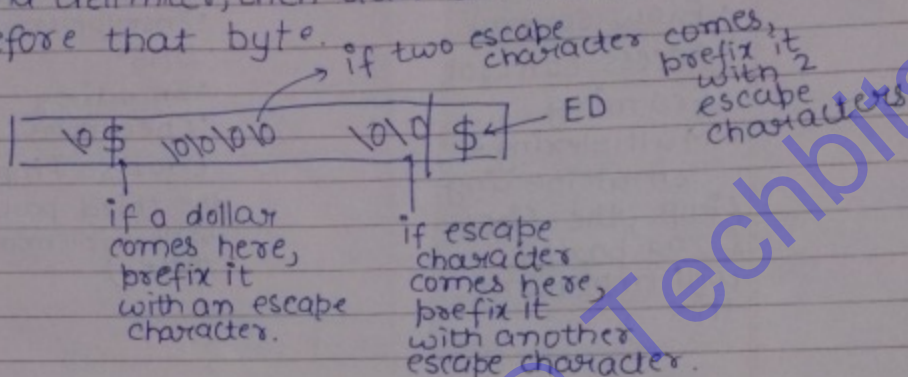 fore that byte.
if two escape
character comes,
prefix it
with 2
escape
characters
\0$ \0\0\0\0 \0\0 $ ED
if a dollar
comes here,
prefix it
with an escape
character.
if escape
character
comes here,
prefix it
with another
escape character.
Techbit